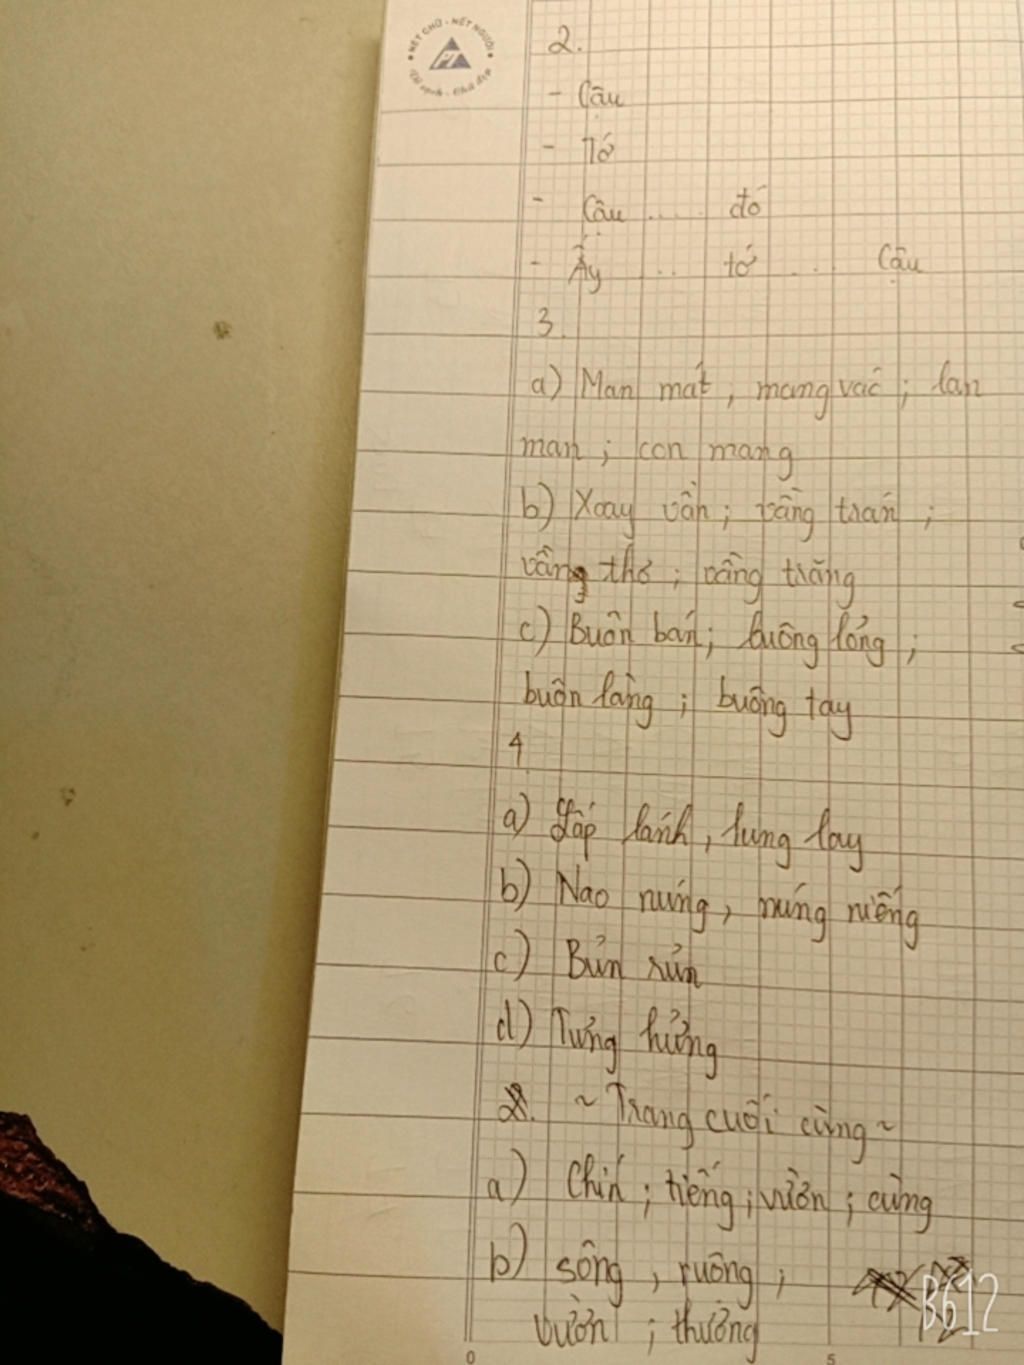 NÉT CHỮ - NẾT NGƯỜI
2.
- Cậu
- Tớ
- Cậu .... đó
- Ấy ... tớ ... Cậu
3.
a) Man mát ; mang vác ; lan
man ; con mang
b) Xoay vần ; vầng trán ;
vầng thơ ; vầng trăng
c) Buôn bán ; buông lỏng ;
buôn làng ; buông tay
4
a) Lấp lánh , lung lay
b) Nao núng , núng niếng
c) Bủn rủn
d) Tưng hửng
~ Trang cuối cùng ~
a) Chín ; tiếng ; vườn ; cùng
b) sông , ruông ;
vườn ; thường
0 5
B612